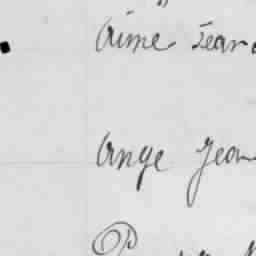 Aimé Jean
Ange Jean
P